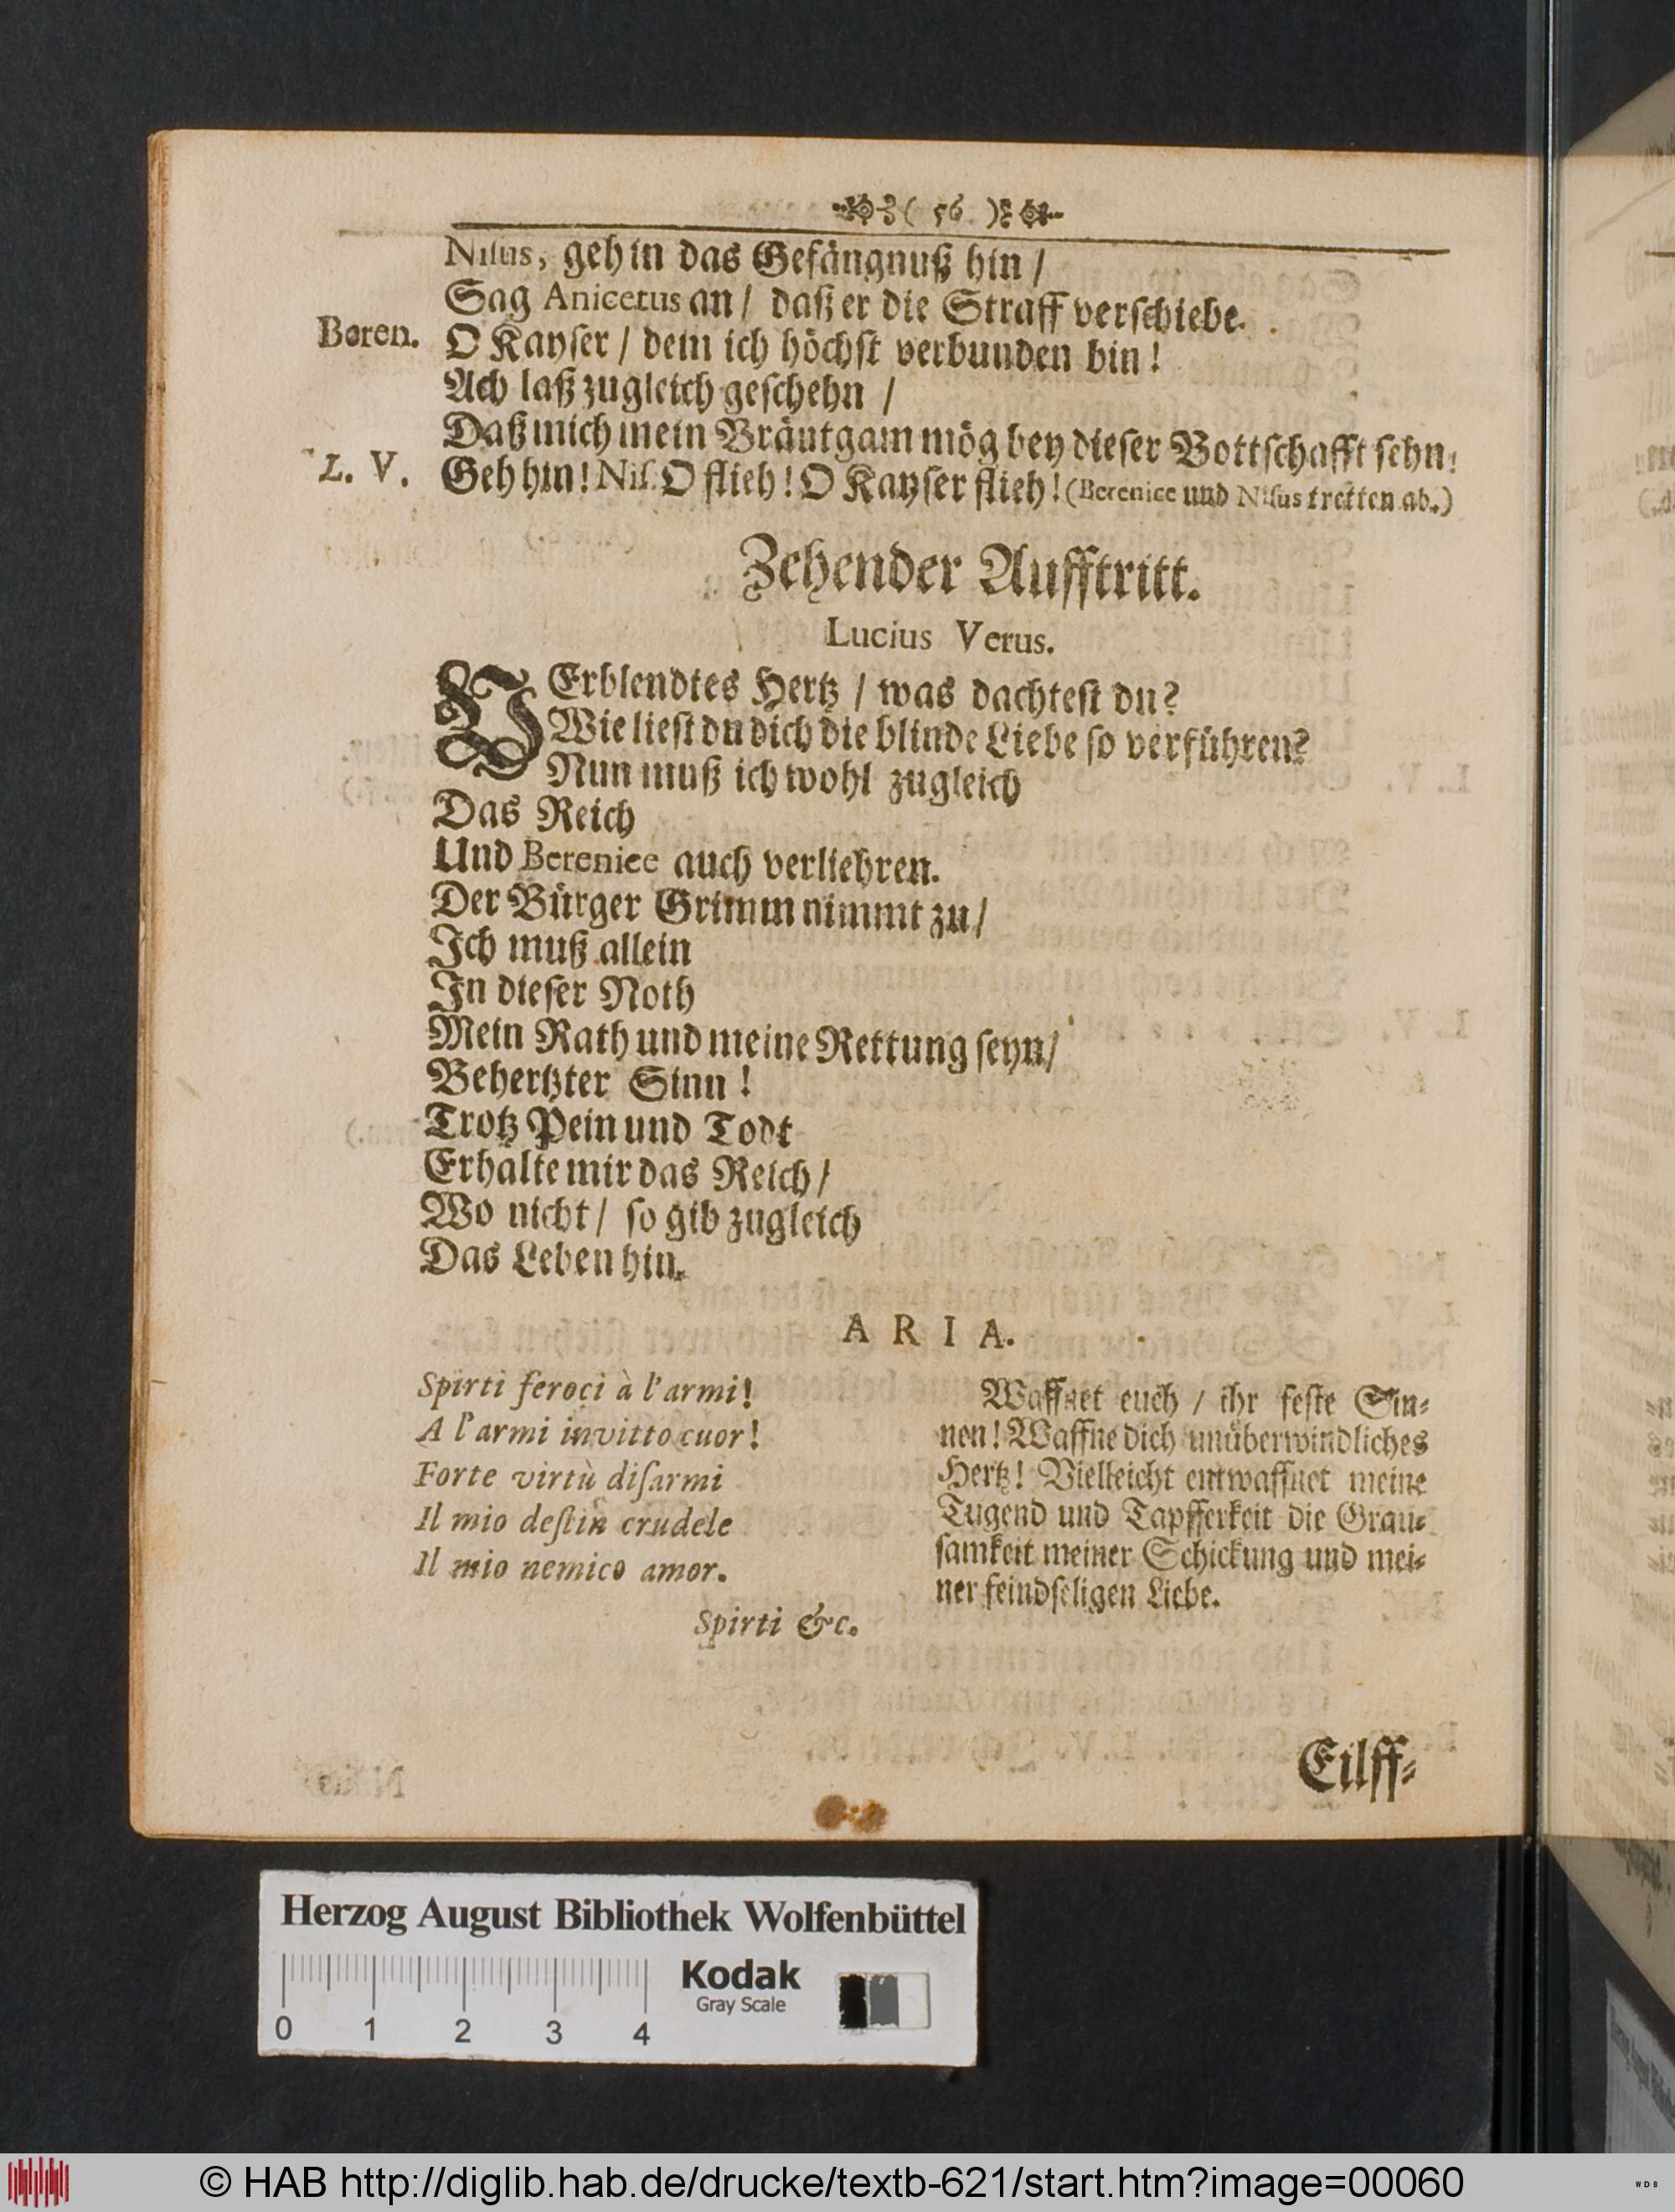 ( 56 )
Nisus, geh in das Gefängnuß hin /
Sag Anicetus an / daß er die Straff verschiebe.
Beren. O Kayser / dem ich höchst verbunden bin !
Ach laß zugleich geschehn /
Daß mich mein Bräutgam mög bey dieser Bottschafft sehn!
L. V. Geh hin! Nis. O flieh! O Kayser flieh! (Berenice und Nisus tretten ab.)
Zehender Aufftritt.
Lucius Verus.
VErblendtes Hertz / was dachtest du?
Wie liest du dich die blinde Liebe so verführen?
Nun muß ich wohl zugleich
Das Reich
Und Berenice auch verliehren.
Der Bürger Grimm nimmt zu /
Ich muß allein
In dieser Noth
Mein Rath und meine Rettung seyn /
Behertzter Sinn !
Trotz Pein und Todt
Erhalte mir das Reich /
Wo nicht / so gib zugleich
Das Leben hin.
ARIA.
Spirti feroci à l'armi!
A l'armi invitto cuor!
Forte virtù disarmi
Il mio destin crudele
Il mio nemico amor.
Spirti &c.
Waffnet euch / ihr feste Sin-
nen! Waffne dich unüberwindliches
Hertz! Vielleicht entwaffnet meine
Tugend und Tapfferkeit die Grau-
samkeit meiner Schickung und mei-
ner feindseligen Liebe.
Eilff-
Herzog August Bibliothek Wolfenbüttel
Kodak
Gray Scale
0 1 2 3 4
© HAB http://diglib.hab.de/drucke/textb-621/start.htm?image=00060
WDB